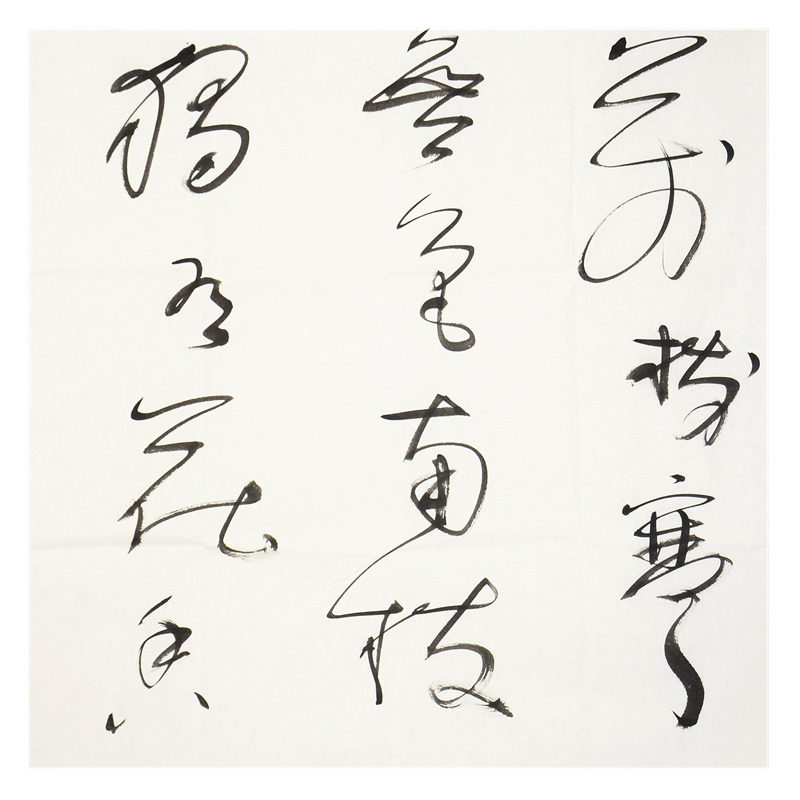 萬樹寒
無色南枝
獨有花香